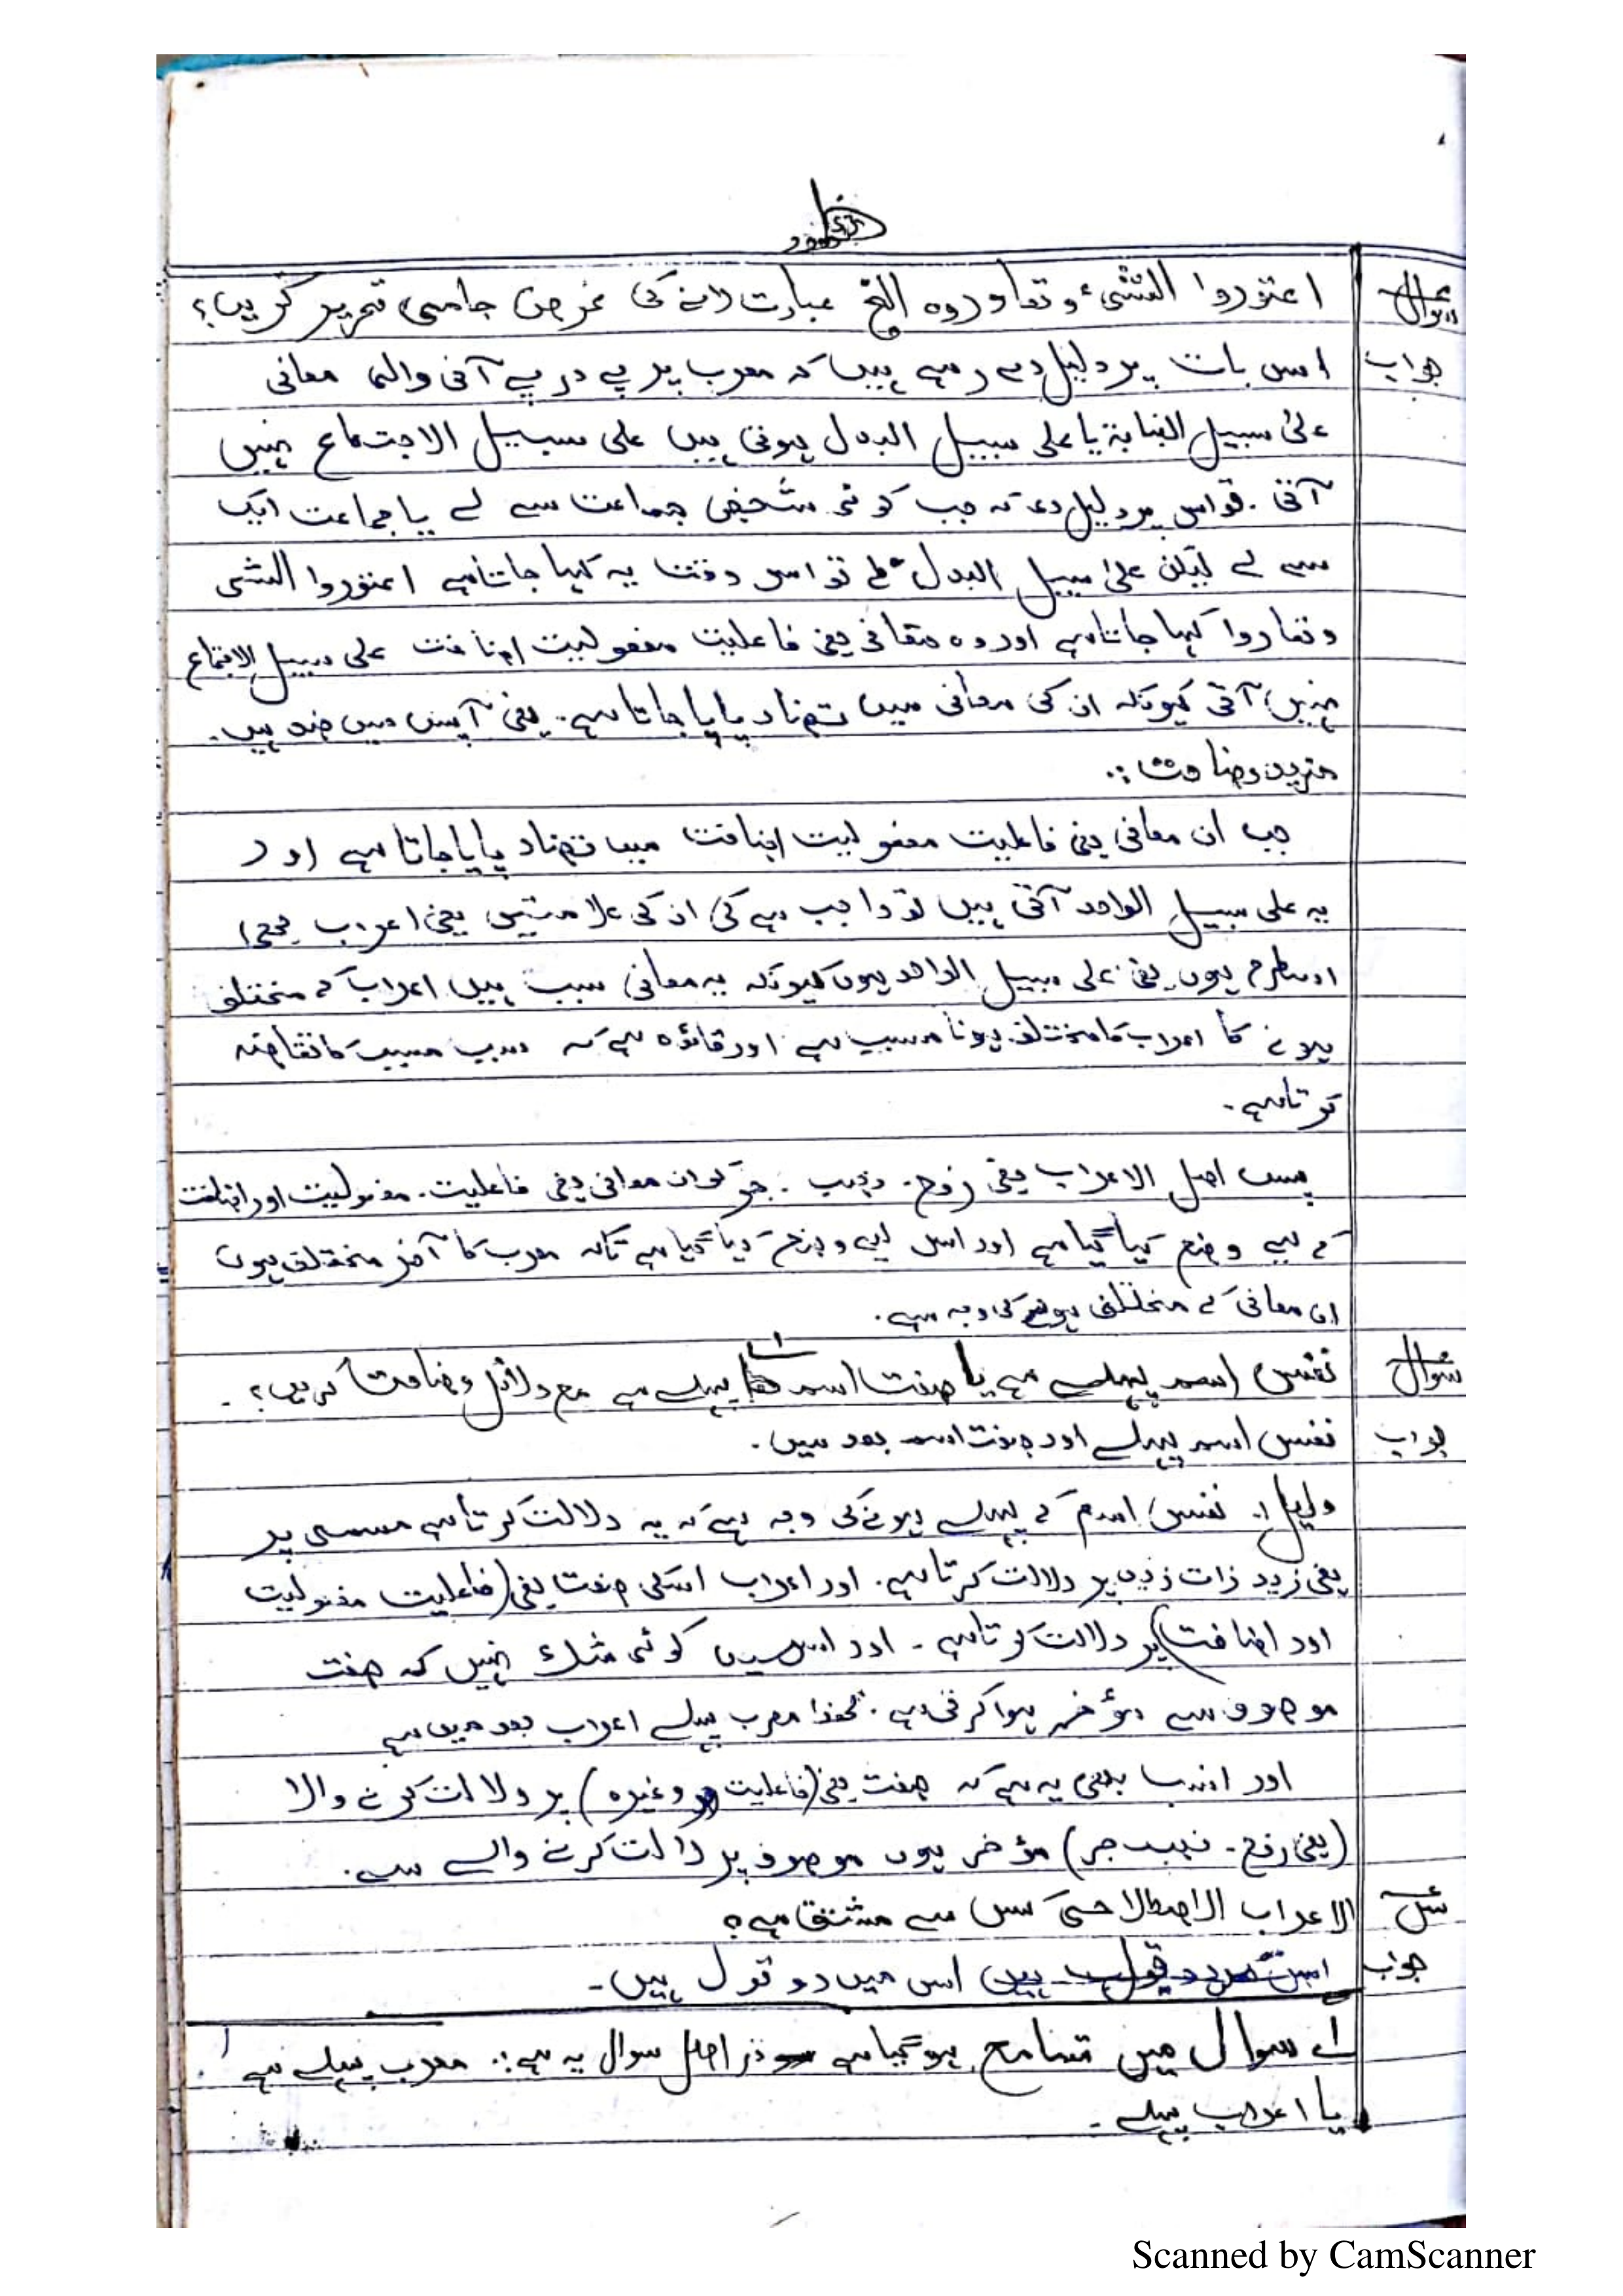 سوال اعتوروا الشیء وتعاوروہ الخ عبارت لانے کی غرض جامی تحریر کریں؟
جواب اس بات پر دلیل دے رہے ہیں کہ معرب پر پے در پے آنی والی معانی
علی سبیل البدل ہوتی ہیں علی سبیل الاجتماع نہیں
آتی . تو اس پر دلیل دی کہ جب کوئی شخص جماعت سے لے یا جماعت ایک
سے لے لیکن علی سبیل البدل تو اس وقت یہ کہا جاتا ہے اعتوروا الشی
وتعاروا کہا جاتا ہے اور وہ معانی یعنی فاعلیت مفعولیت اضافت علی سبیل الاجتماع
نہیں آتی کیونکہ ان کی معانی میں تضاد پایا جاتا ہے۔ یعنی آپس میں ضد ہیں۔
مزید وضاحت :.
جب ان معانی یعنی فاعلیت مفعولیت اضافت میں تضاد پایا جاتا ہے اور
یہ علی سبیل الواحد آتی ہیں تو واجب ہے کی ان کی علامتیں یعنی اعراب بھی
اسطرح ہوں یعنی علی سبیل الواحد ہوں کیونکہ یہ معانی سبب ہیں اعراب کے مختلف
ہونے کا اعراب کا مختلف ہونا مسبب ہے اور قائدہ ہے کہ سبب مسبب کا تقاضہ
کرتا ہے۔
پس اصل الاعراب یعنی رفع۔ نصب۔ جر کو ان معانی یعنی فاعلیت۔ مفعولیت اور اضافت
کے لیے وضع کیا گیا ہے اور اس لیے وضع کیا گیا ہے تاکہ معرب کا آخر مختلف ہوں
ان معانی کے مختلف ہونے کی وجہ سے۔
سوال نفس اسم پہلے ہے یا صفت اسم پہلے ہے مع دلائل وضاحت کریں؟ ۱ے
جواب نفس اسم پہلے اور صفت اسم بعد میں۔
دلیل :. نفس اسم کے پہلے ہونے کی وجہ ہے کہ یہ دلالت کرتا ہے مسمی پر
یعنی زید ذات زید پر دلالت کرتا ہے۔ اور اعراب اسکی صفت یعنی (فاعلیت مفعولیت
اور اضافت) پر دلالت کرتا ہے۔ اور اس میں کوئی شک نہیں کہ صفت
موصوف سے مؤخر ہوا کرتی ہے۔ لھذا معرب پہلے اعراب بعد میں ہے
اور انسب بھی یہ ہے کہ صفت یعنی (فاعلیت وغیرہ) پر دلالت کرنے والا
(یعنی رفع۔ نصب جر) مؤخر ہوں موصوف پر دالت کرنے والے سے۔
سئل الاعراب الاصطلاحی کس سے مشتق ہے؟
جواب اس میں دو قول ہیں۔
۱ے سوال میں تسامح ہوگیا ہے در اصل سوال یہ ہے:. معرب پہلے ہے
یا اعراب پہلے۔
Scanned by CamScanner